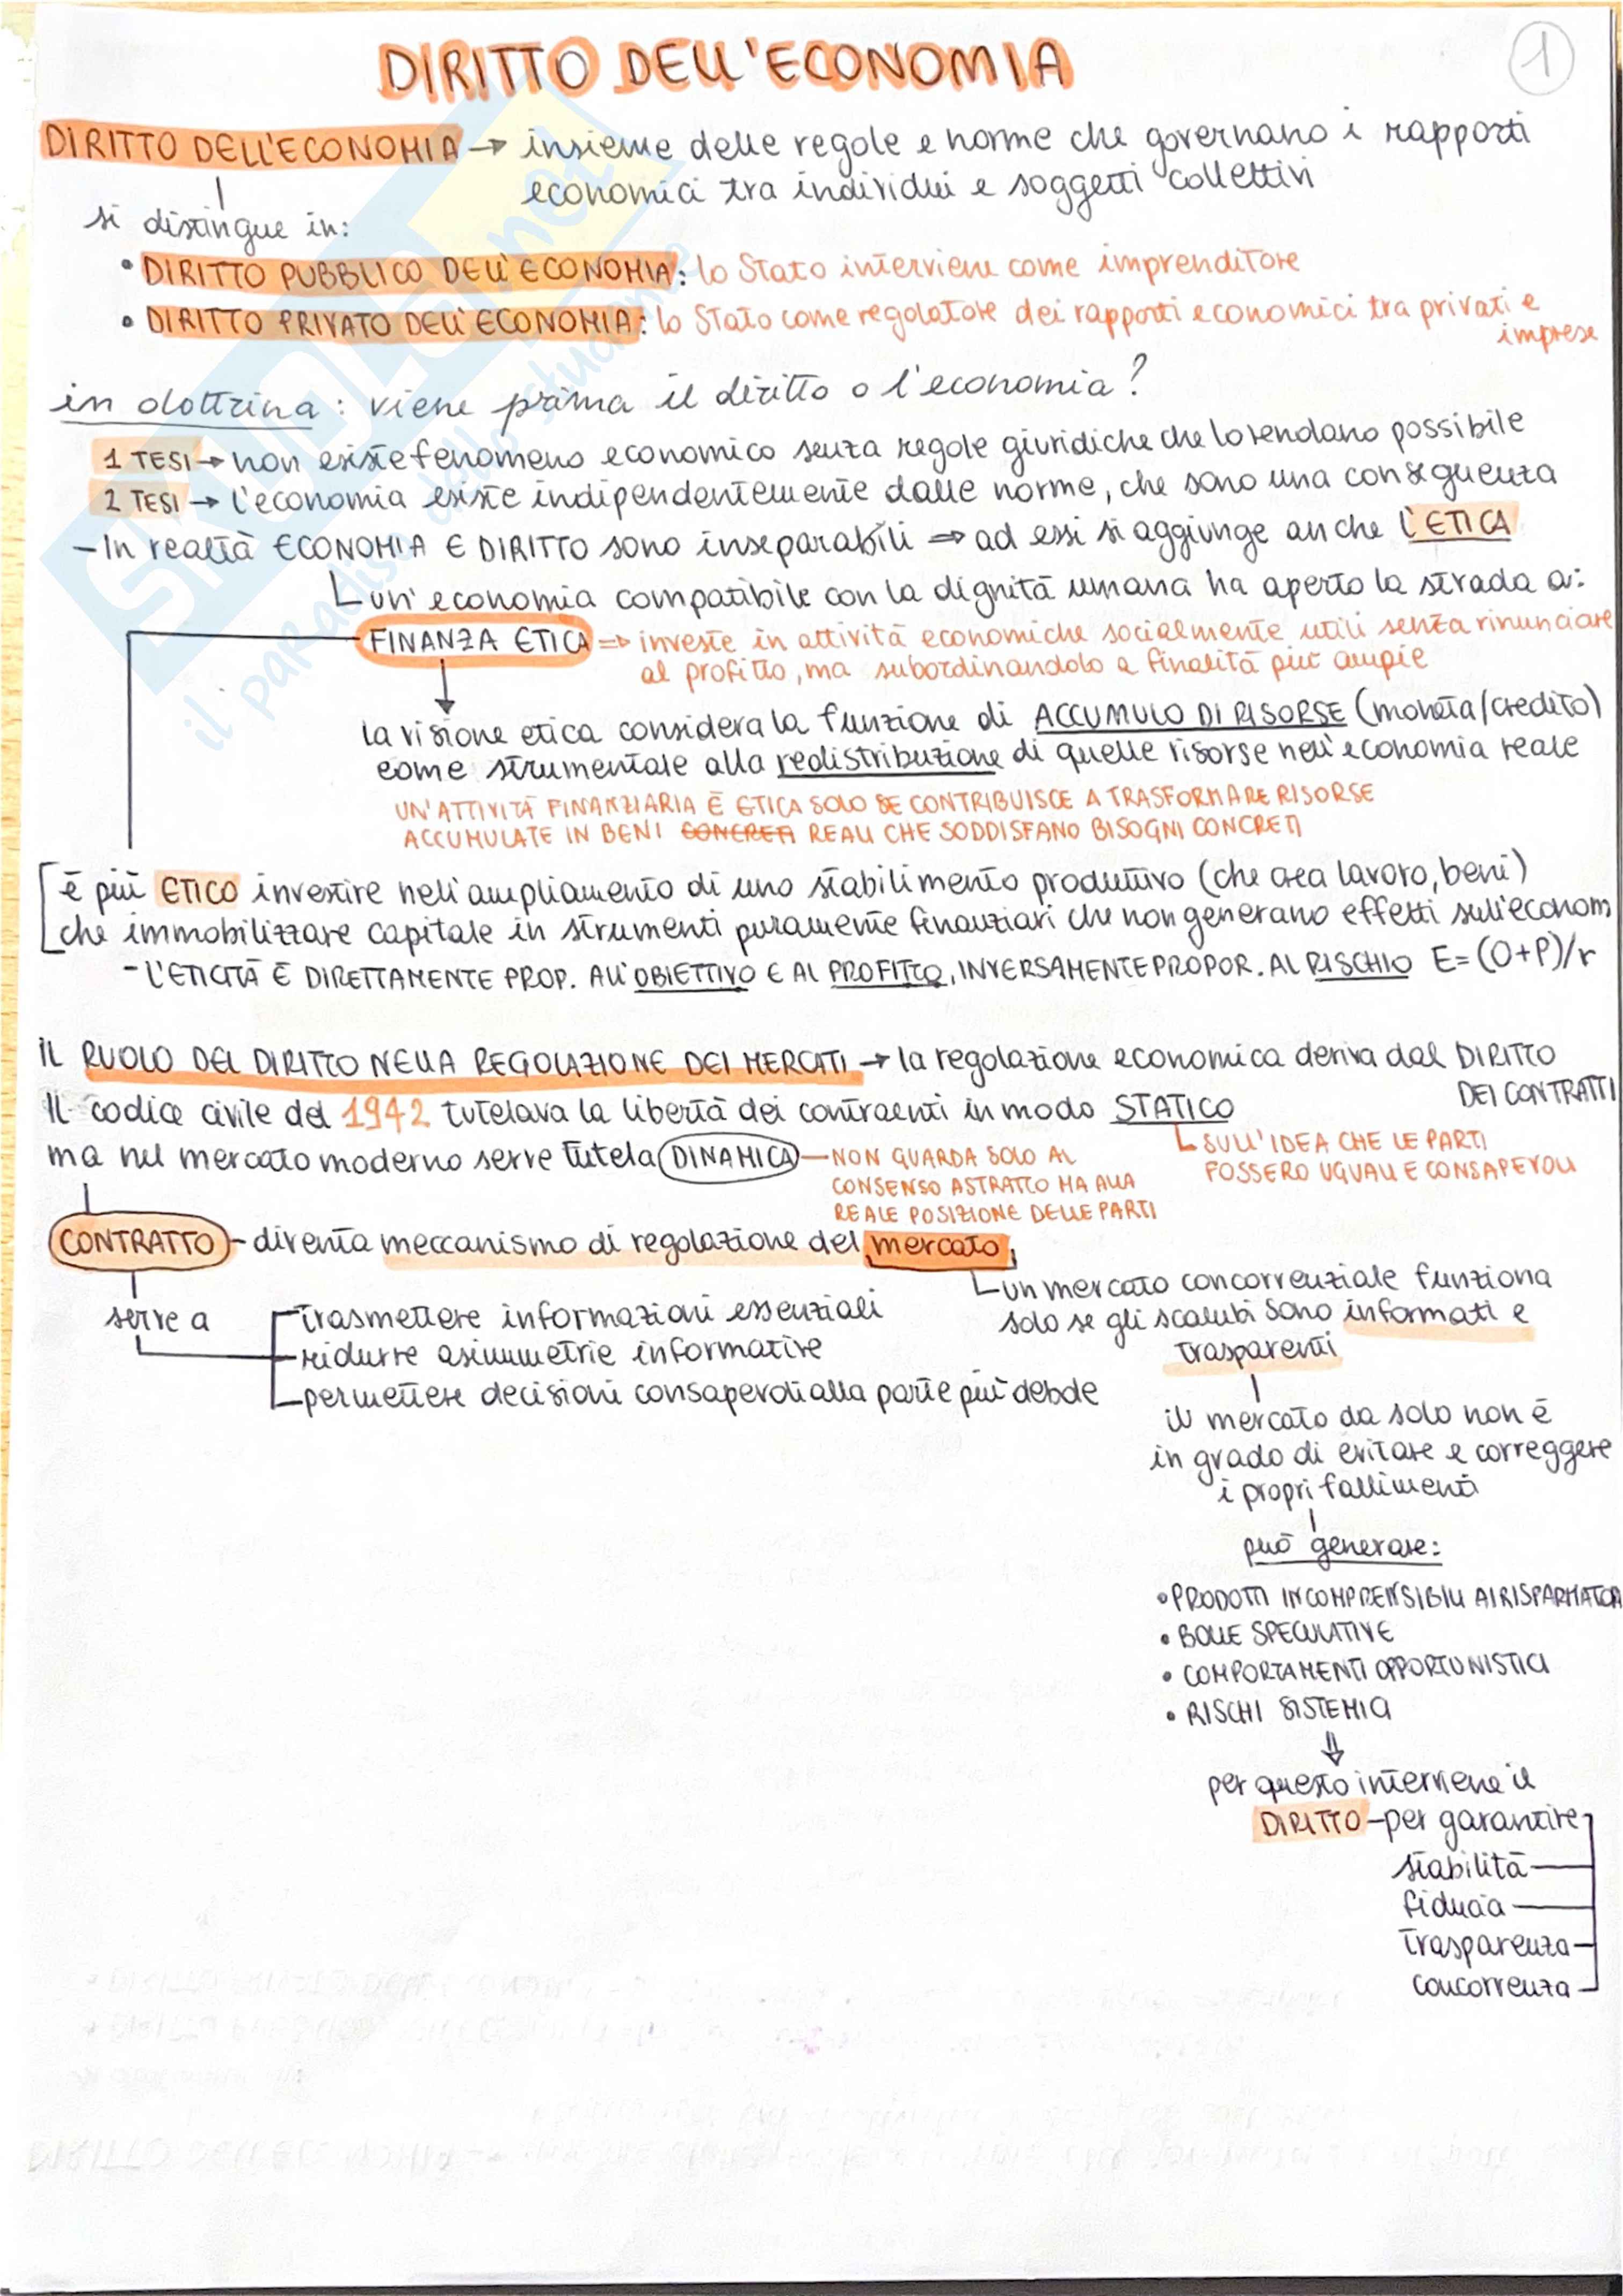 DIRITTO DELL'ECONOMIA
1
DIRITTO DELL'ECONOMIA → insieme delle regole e norme che governano i rapporti
economici tra individui e soggetti collettivi
si distingue in:
• DIRITTO PUBBLICO DELL'ECONOMIA: lo Stato interviene come imprenditore
• DIRITTO PRIVATO DELL'ECONOMIA: lo Stato come regolatore dei rapporti economici tra privati e
imprese
in dottrina: viene prima il diritto o l'economia?
1 TESI → non esiste fenomeno economico senza regole giuridiche che lo rendano possibile
2 TESI → l'economia esiste indipendentemente dalle norme, che sono una conseguenza
- In realtà ECONOMIA E DIRITTO sono inseparabili ⇒ ad essi si aggiunge anche l'ETICA
un'economia compatibile con la dignità umana ha aperto la strada a:
FINANZA ETICA ⇒ investe in attività economiche socialmente utili senza rinunciare
al profitto, ma subordinandolo a finalità più ampie
la visione etica considera la funzione di ACCUMULO DI RISORSE (moneta/credito)
come strumentale alla redistribuzione di quelle risorse nell'economia reale
UN'ATTIVITÀ FINANZIARIA È ETICA SOLO SE CONTRIBUISCE A TRASFORMARE RISORSE
ACCUMULATE IN BENI CONCRETI REALI CHE SODDISFANO BISOGNI CONCRETI
è più ETICO investire nell'ampliamento di uno stabilimento produttivo (che crea lavoro, beni)
che immobilizzare capitale in strumenti puramente finanziari che non generano effetti sull'econom
- L'ETICITÀ È DIRETTAMENTE PROP. ALL'OBIETTIVO E AL PROFITTO, INVERSAMENTE PROPOR. AL RISCHIO E=(O+P)/r
IL RUOLO DEL DIRITTO NELLA REGOLAZIONE DEI MERCATI → la regolazione economica deriva dal DIRITTO
DEI CONTRATTI
Il codice civile del 1942 tutelava la libertà dei contraenti in modo STATICO
SULL'IDEA CHE LE PARTI
FOSSERO UGUALI E CONSAPEVOLI
ma nel mercato moderno serve tutela DINAMICA — NON GUARDA SOLO AL
CONSENSO ASTRATTO MA ALLA
REALE POSIZIONE DELLE PARTI
CONTRATTO - diventa meccanismo di regolazione del mercato,
un mercato concorrenziale funziona
solo se gli scambi sono informati e
trasparenti
serve a
trasmettere informazioni essenziali
ridurre asimmetrie informative
permettere decisioni consapevoli alla parte più debole
il mercato da solo non è
in grado di evitare e correggere
i propri fallimenti
può generare:
• PRODOTTI INCOMPRENSIBILI AI RISPARMIATORI
• BOLLE SPECULATIVE
• COMPORTAMENTI OPPORTUNISTICI
• RISCHI SISTEMICI
⇓
per questo interviene il
DIRITTO - per garantire
stabilità
fiducia
trasparenza
concorrenza
SKUOLA.net
il paradiso dello studente